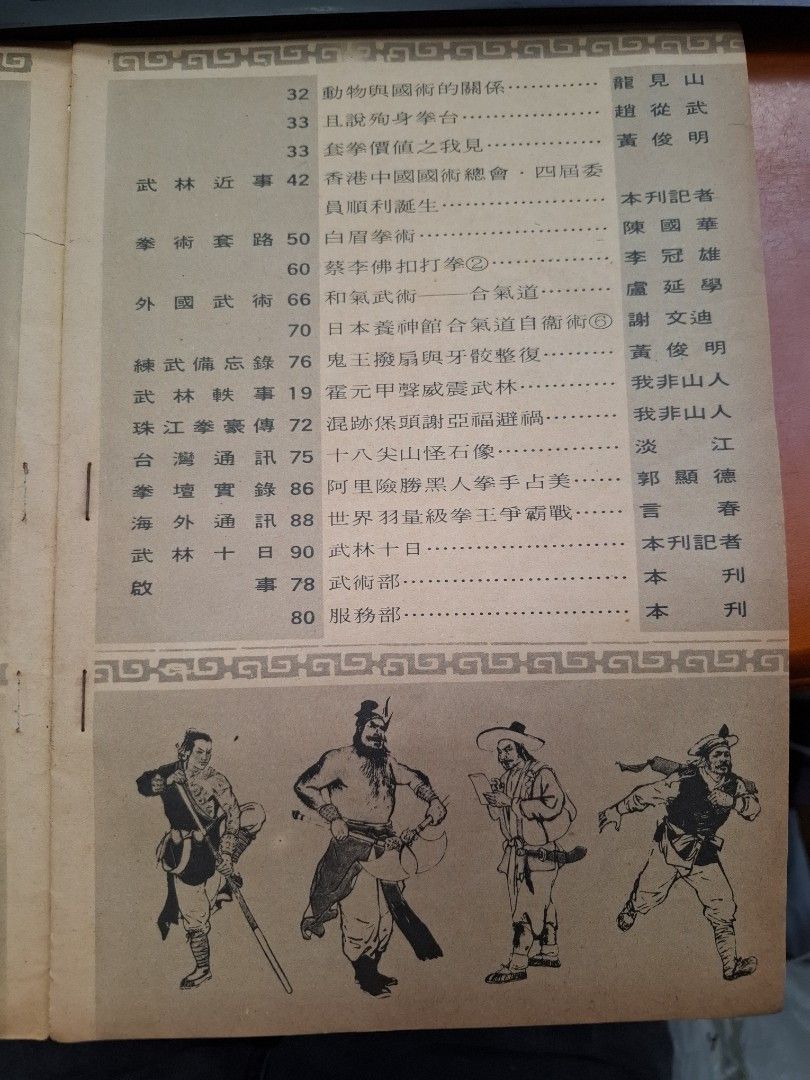 32 動物與國術的關係………… 龍見山
33 且說殉身拳台……………… 趙從武
33 套拳價值之我見…………… 黃俊明
武林近事 42 香港中國國術總會·四屆委
員順利誕生…………………… 本刊記者
拳術套路 50 白眉拳術……………………… 陳國華
60 蔡李佛扣打拳②…………… 李冠雄
外國武術 66 和氣武術——合氣道……… 盧延學
70 日本養神館合氣道自衞術⑥ 謝文迪
練武備忘錄 76 鬼王撥扇與牙骹整復……… 黃俊明
武林軼事 19 霍元甲聲威震武林………… 我非山人
珠江拳豪傳 72 混跡保頭謝亞福避禍……… 我非山人
台灣通訊 75 十八尖山怪石像…………… 淡江
拳壇實錄 86 阿里險勝黑人拳手占美…… 郭顯德
海外通訊 88 世界羽量級拳王爭霸戰…… 言春
武林十日 90 武林十日…………………… 本刊記者
啟事 78 武術部……………………… 本刊
80 服務部……………………… 本刊